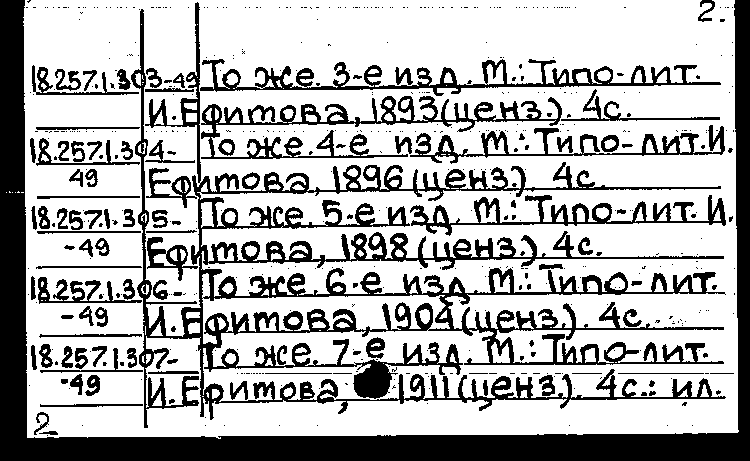 2.
18.257.1.303-49 То же. 3-е изд. М.: Типо-лит.
И. Ефитова, 1893 (ценз.). 4с.
18.257.1.304- То же. 4-е изд. М.: Типо-лит. И.
49 Ефитова, 1896 (ценз.). 4с.
18.257.1.305- То же. 5-е изд. М.: Типо-лит. И.
-49 Ефитова, 1898 (ценз.). 4с.
18.257.1.306- То же. 6-е изд. М.: Типо-лит.
-49 И. Ефитова, 1904 (ценз.). 4с.
18.257.1.307- То же. 7-е изд. М.: Типо-лит.
-49 И. Ефитова, 1911 (ценз.). 4с.: ил.
2